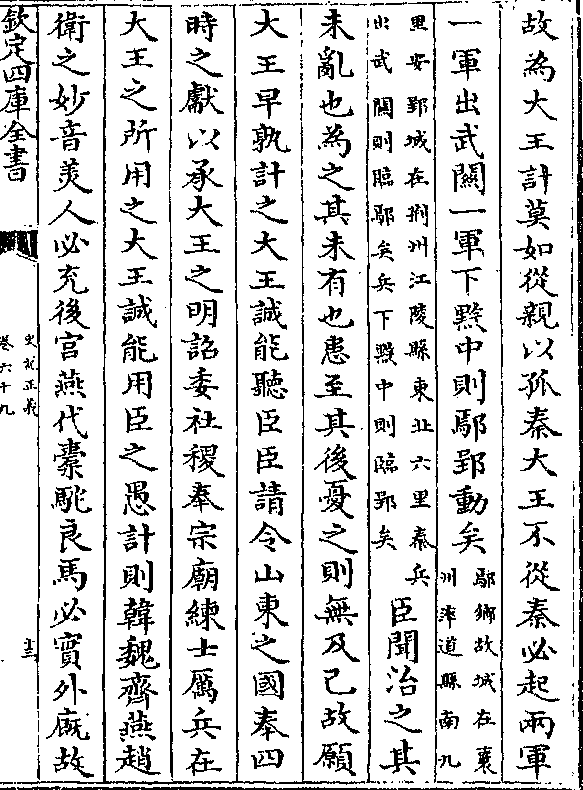 故為大王計莫如從親以孤秦大王不從秦必起兩軍
一軍出武關一軍下黔中則鄢郢動矣鄢鄉故城在襄州率道縣南九
里安郢城在荆州江陵縣東北六里秦兵出武關則臨鄢矣兵下黔中則臨郢矣臣聞治之其
未亂也為之其未有也患至其後憂之則無及已故願
大王早孰計之大王誠能聽臣臣請令山東之國奉四
時之獻以承大王之明詔委社稷奉宗廟練士厲兵在
大王之所用之大王誠能用臣之愚計則韓魏齊燕趙
衛之妙音美人必充後宮燕代橐駞良馬必實外廐故
欽定四庫全書
史記正義
卷六十九
十三